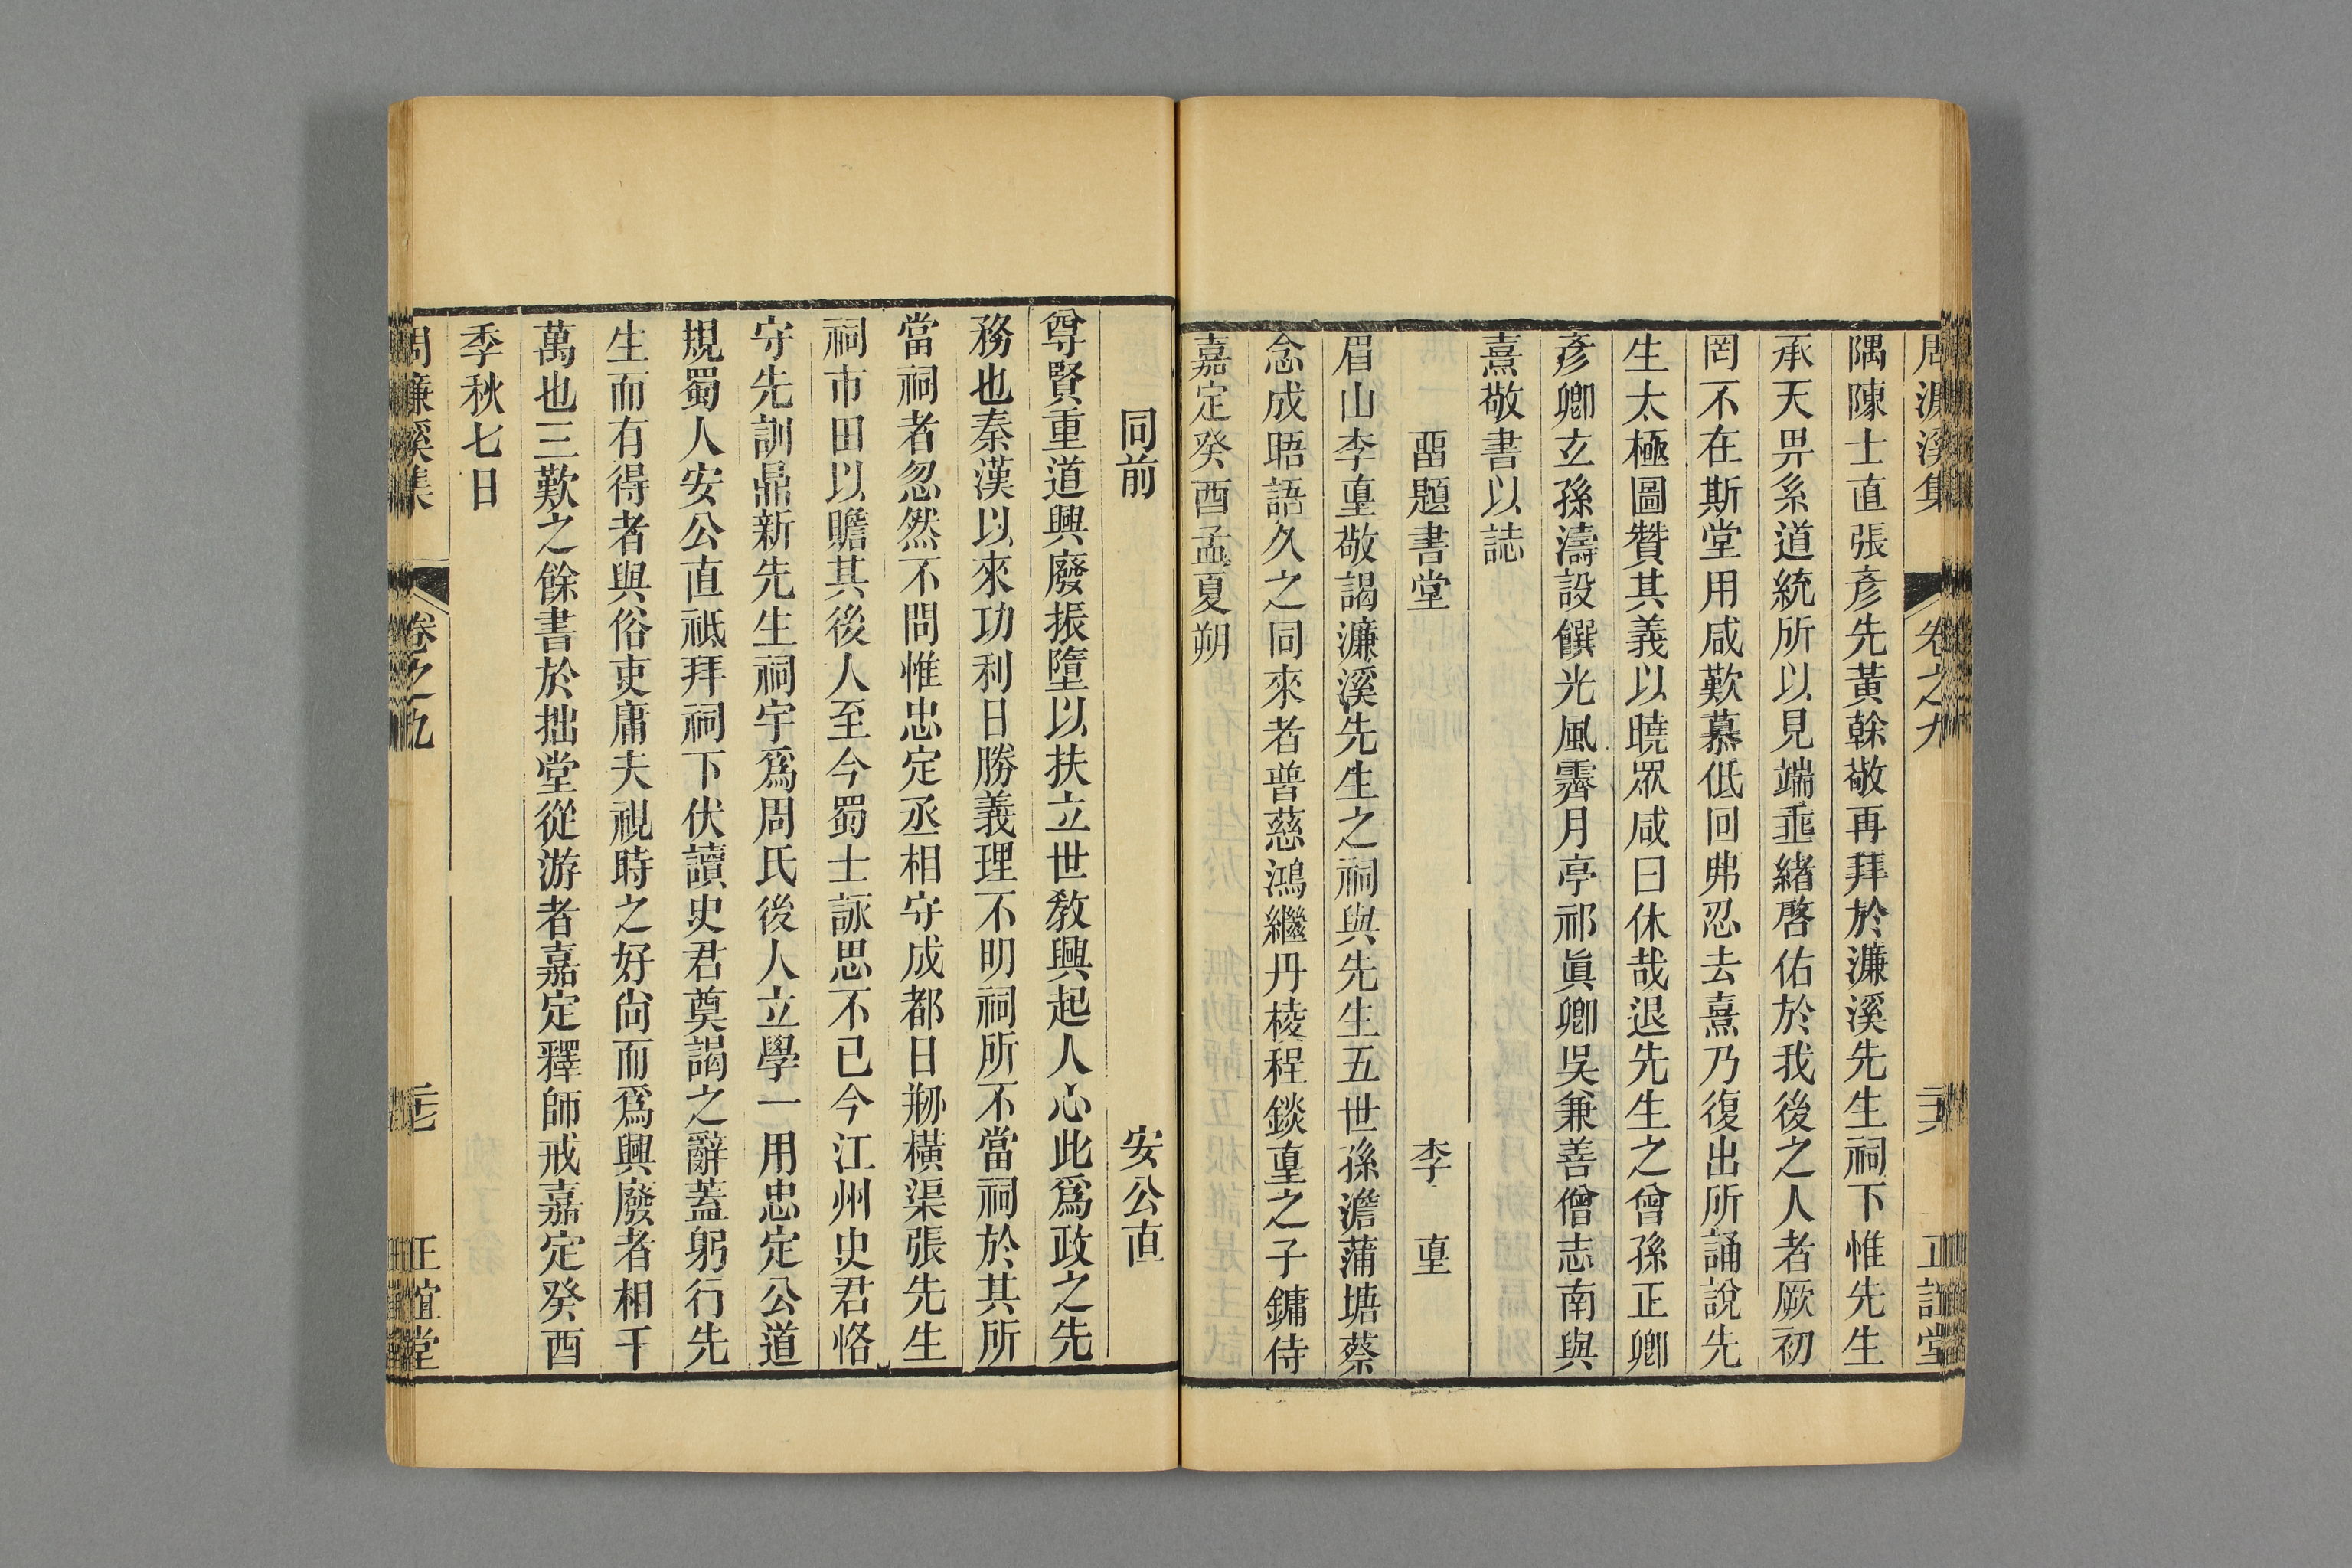 周濂溪集 卷之九 二六 正誼堂
隅陳士直張彥先黃榦敬再拜於濂溪先生祠下惟先生
承天畀系道統所以見端垂緒啓佑於我後之人者厥初
罔不在斯堂用咸歎慕低回弗忍去熹乃復出所誦說先
生太極圖贊其義以曉眾咸曰休哉退先生之曾孫正卿
彥卿玄孫濤設饌光風霽月亭祁眞卿吳兼善僧志南與
熹敬書以誌
畱題書堂 李𡌴
眉山李𡌴敬謁濂溪先生之祠與先生五世孫澹蒲塘蔡
念成晤語久之同來者普慈鴻繼丹棱程錟𡌴之子鏞侍
嘉定癸酉孟夏朔
同前 安公直
尊賢重道興廢振墮以扶立世教興起人心此爲政之先
務也秦漢以來功利日勝義理不明祠所不當祠於其所
當祠者忽然不問惟忠定丞相守成都日剏橫渠張先生
祠市田以贍其後人至今蜀士詠思不已今江州史君恪
守先訓鼎新先生祠宇爲周氏後人立學一用忠定公道
規蜀人安公直祗拜祠下伏讀史君奠謁之辭蓋躬行先
生而有得者與俗吏庸夫視時之好尙而爲興廢者相千
萬也三歎之餘書於拙堂從游者嘉定釋師戒嘉定癸酉
季秋七日
周濂溪集 卷之九 二七 正誼堂